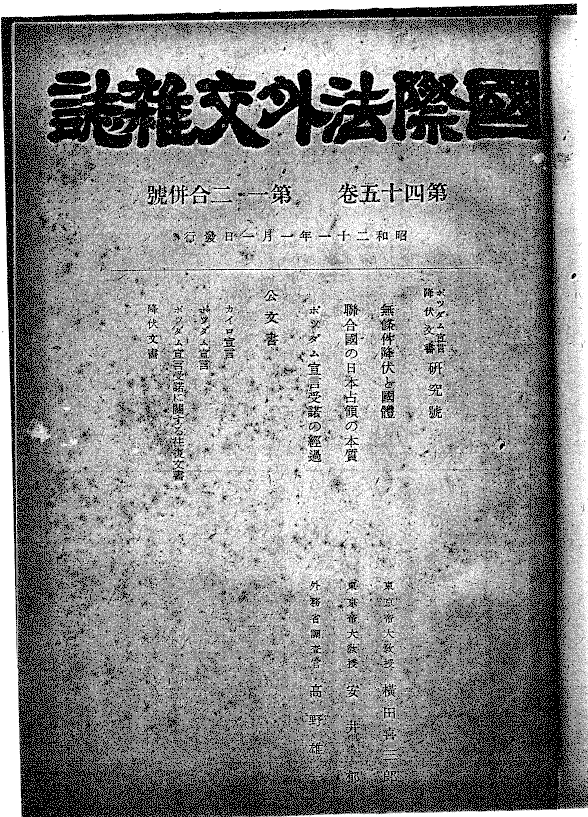 國際法外交雜誌
第四十五卷 第一・二合併號
昭和二十一年一月一日發行
ポツダム宣言
降伏文書 研究號
無條件降伏と國體 東京帝大教授 橫田喜三郎
聯合國の日本占領の本質 東京帝大教授 安井郁
ポツダム宣言受諾の經過 外務省調査官 高野雄一
公文書
カイロ宣言
ポツダム宣言
ポツダム宣言受諾に關する往復文書
降伏文書